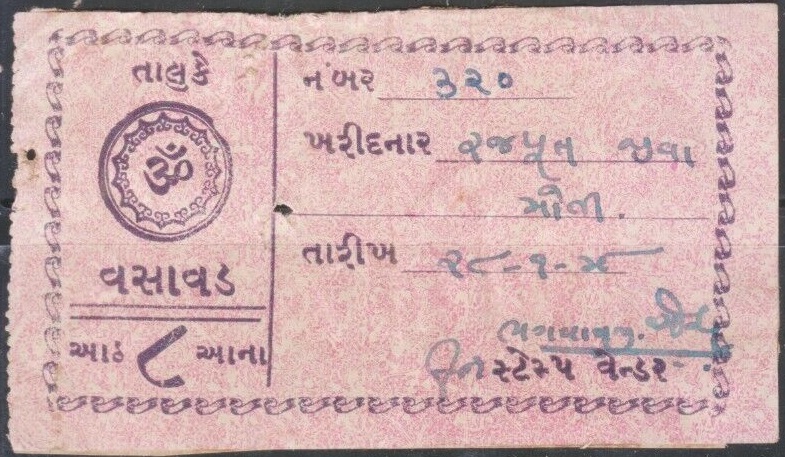 તાલુકે
ૐ
વસાવડ
આઠ ૮ આના
નંબર ૩૨૦
ખરીદનાર રજપૂત જીવા
તારીખ ૨૮-૧-૪૮
સ્ટેમ્પ વેન્ડર